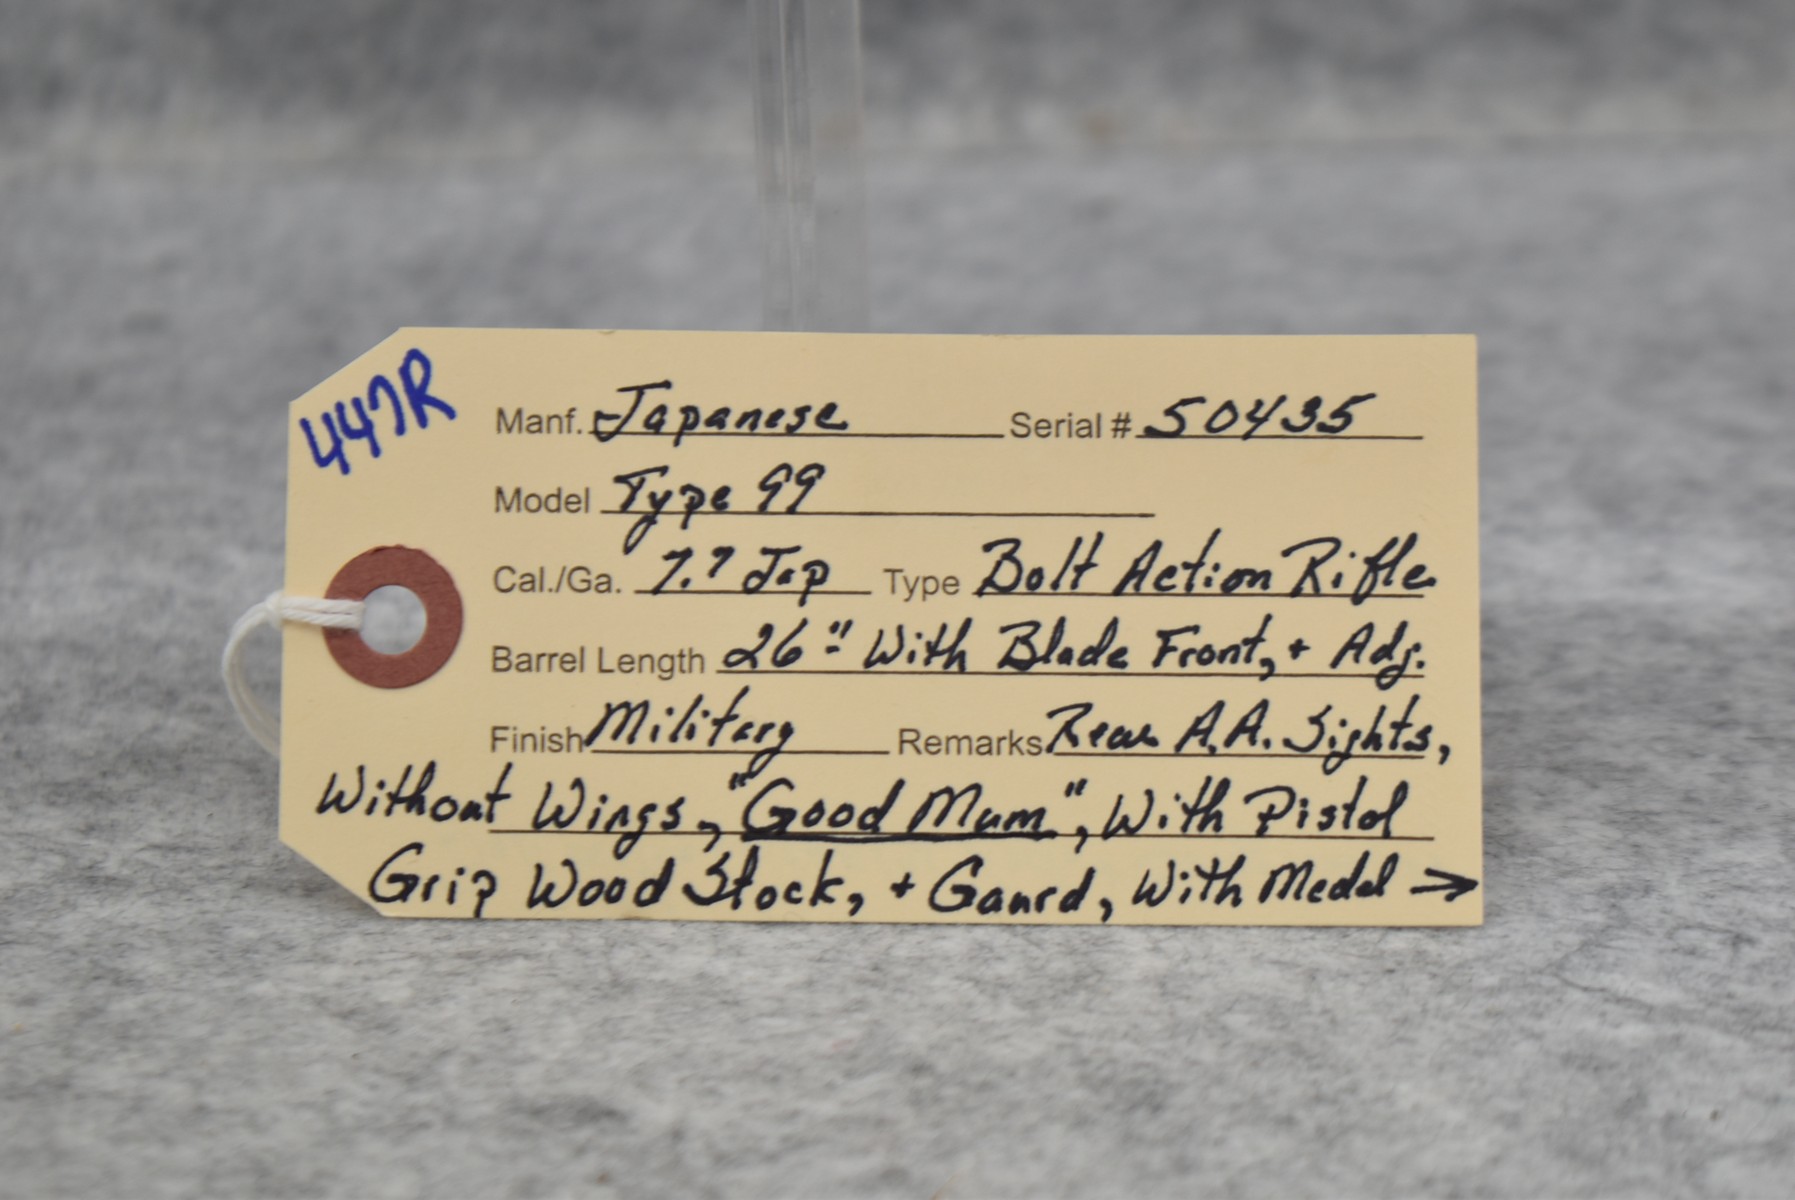 447R
Manf. Japanese Serial # 50435
Model Type 99
Cal./Ga. 7.7 Jap Type Bolt Action Rifle
Barrel Length 26" With Blade Front, + Adj.
Finish Military Remarks Rear A.A. Sights,
Without Wings, "Good Mum", With Pistol
Grip Wood Stock, + Gaurd, With Medal →